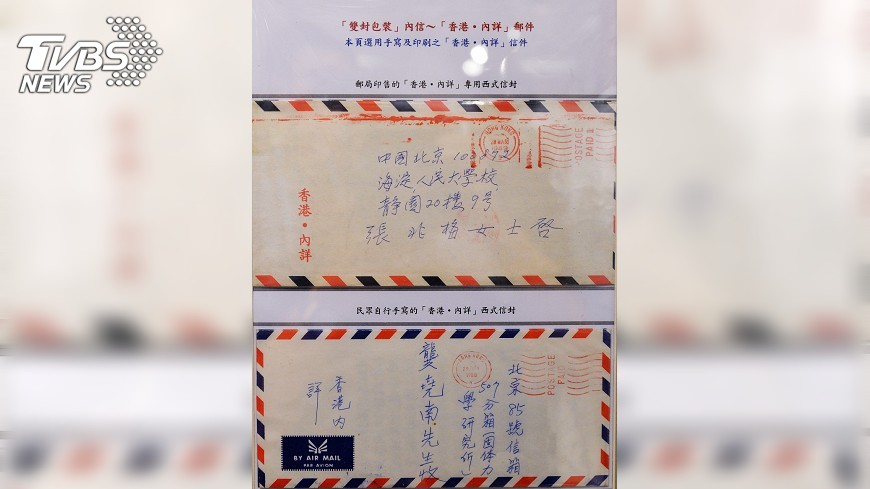 TVBS
NEWS
「雙封包裝」內信～「香港・內詳」郵件
本頁選用手寫及印刷之「香港・內詳」信件
郵局印售的「香港・內詳」專用西式信封
HONG KONG
POSTAGE
PAID
中國北京
海淀人民大學校
靜園20樓9号
張兆梅女士啓
香港・內詳
民眾自行手寫的「香港・內詳」西式信封
北京85號信箱
507分箱(固体力
學研究所)
龔堯南先生收
香港內
詳
POSTAGE
PAID
BY AIR MAIL
PAR AVION